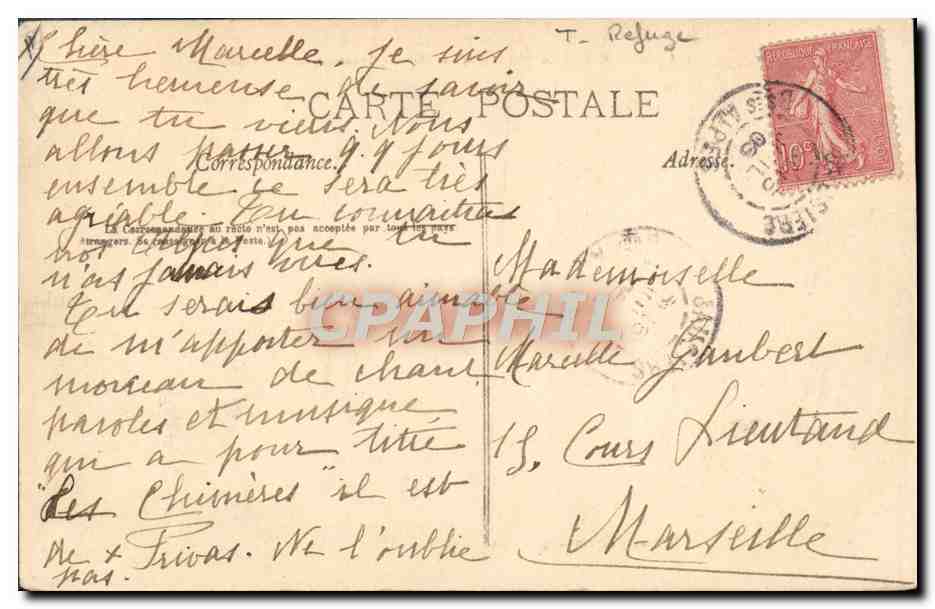 T- Refuge
Chère Marcelle. Je suis
très heureuse de savoir
que tu viens. Nous
allons passer q.q jours
ensemble ce sera très
agréable. Tu connaitras
nos que tu
n'as jamais vues.
Tu serais bien aimable
de m'apporter ton
morceau de chant,
paroles et musique
qui a pour titre
"Les Chimères" il est
de x Privas. Ne l'oublie
pas.
CARTE POSTALE
Correspondance.
Adresse.
La Correspondance au recto n'est pas acceptée par tous les pays
étrangers. Se renseigner à la Poste.
Mademoiselle
Marcelle Gaubert
15, Cours Lieutaud
Marseille
REPUBLIQUE FRANÇAISE
10c
CPAPHIL